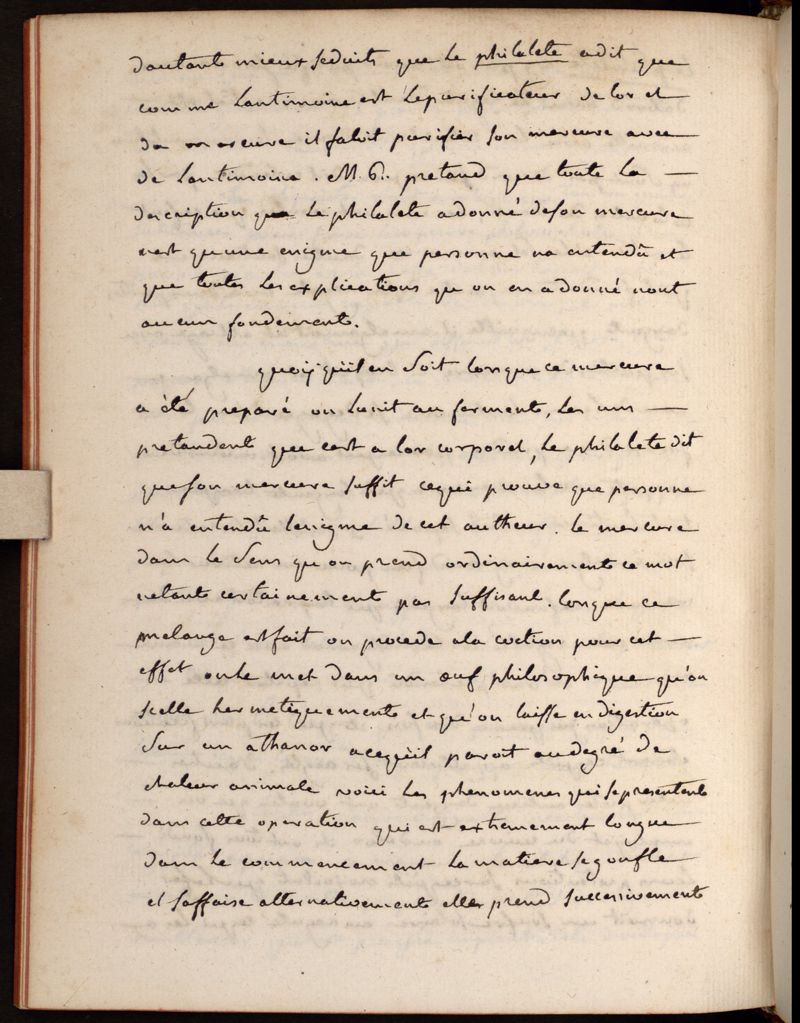 dautants mieux seduits que le philalete a dit que
comme lantimoine est lepurificateur de lor et
du mercure il faloit purifier son mercure avec
de lantimoine. M. G. pretand que toute la —
description que le philalete a donné deson mercure
nest qu'une enigme que personne na entendû et
que toutes les explications qu on en a donné nont
aucun fondements.
quoiqu'il en soit lorsque ce mercure
a été preparé on lunit au ferments, les uns —
pretandents que cest a lor corporel, le philalete dit
queson mercure suffit cequi prouve que personne
n'a entendû lenigme de cet autheur. le mercure
dans le sens qu on prend ordinairements ce mot
netants certainement pas suffisant. lorsque ce
melange est fait on procede ala coction pour cet —
effet on le met dans un œuf philosophique qu'on
scelle hermetiquements et qu'on laisse en digestion
sur un athanor acequ'il paroit audegré de
chaleur animale voici les phenomenes qui sepresentents
dans cette operation qui est extremement longue
dans le commencement la matiere segonfle
et saffaise alternativements elles prend successivements